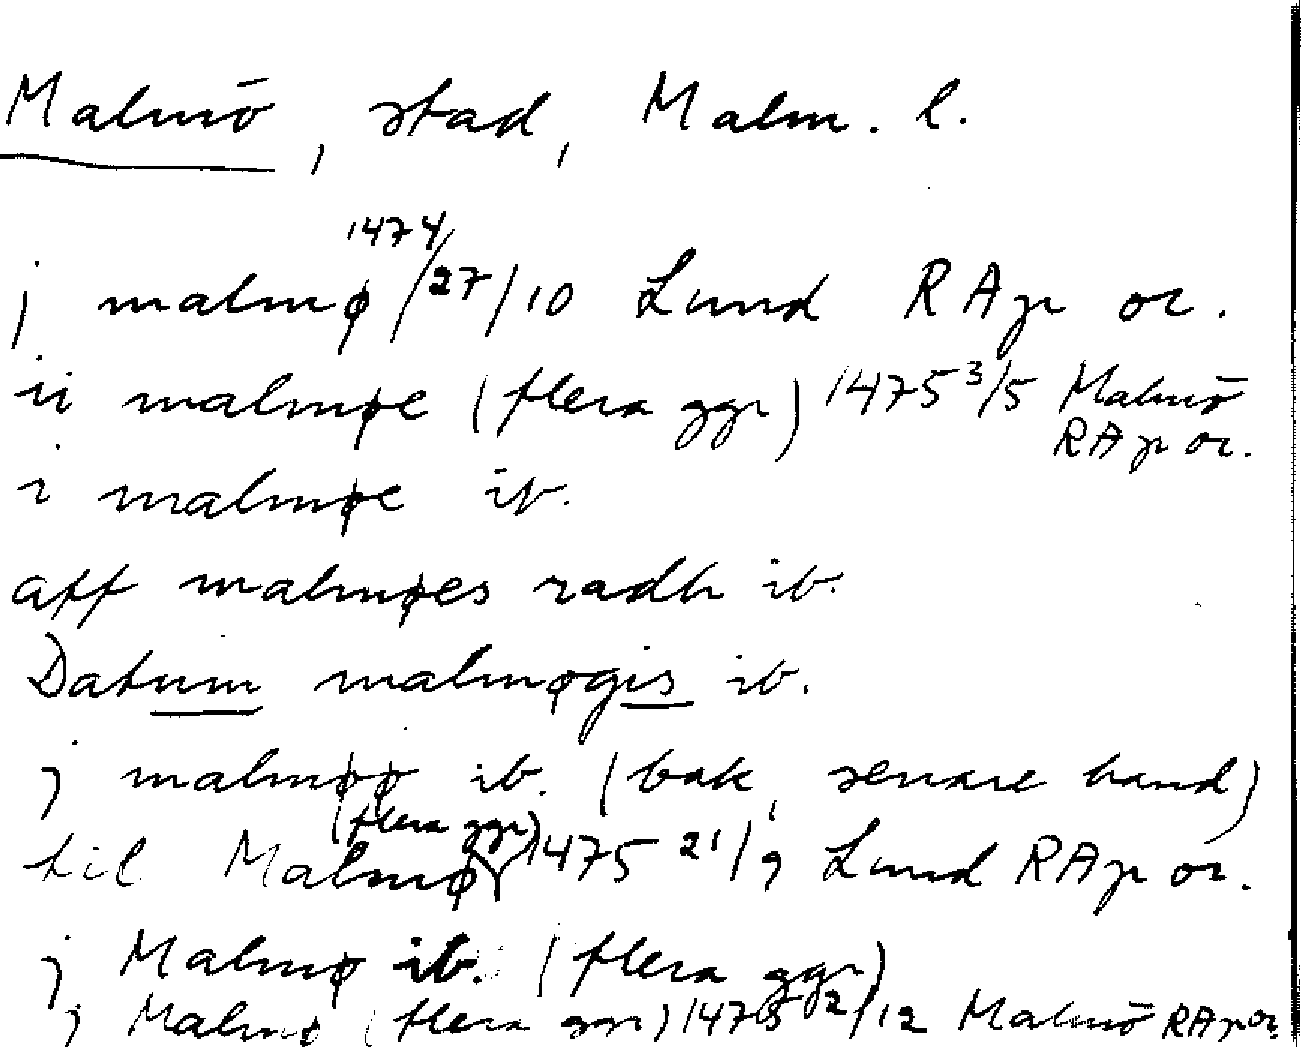 Malmö, stad, Malm. l.
j malmø 1474 27/10 Lund RAp or.
ii malmøe (flera ggr) 1475 3/5 Malmö
RAp or.
i malmøe ib.
aff malmøes radh ib.
Datum malmøgis ib.
j malmøø ib. (bak, senare hand)
til Malmø (flera ggr) 1475 21/9 Lund RAp or.
j Malmø ib. (flera ggr)
j Malmø (flera ggr) 1475 2/12 Malmö RAp or.